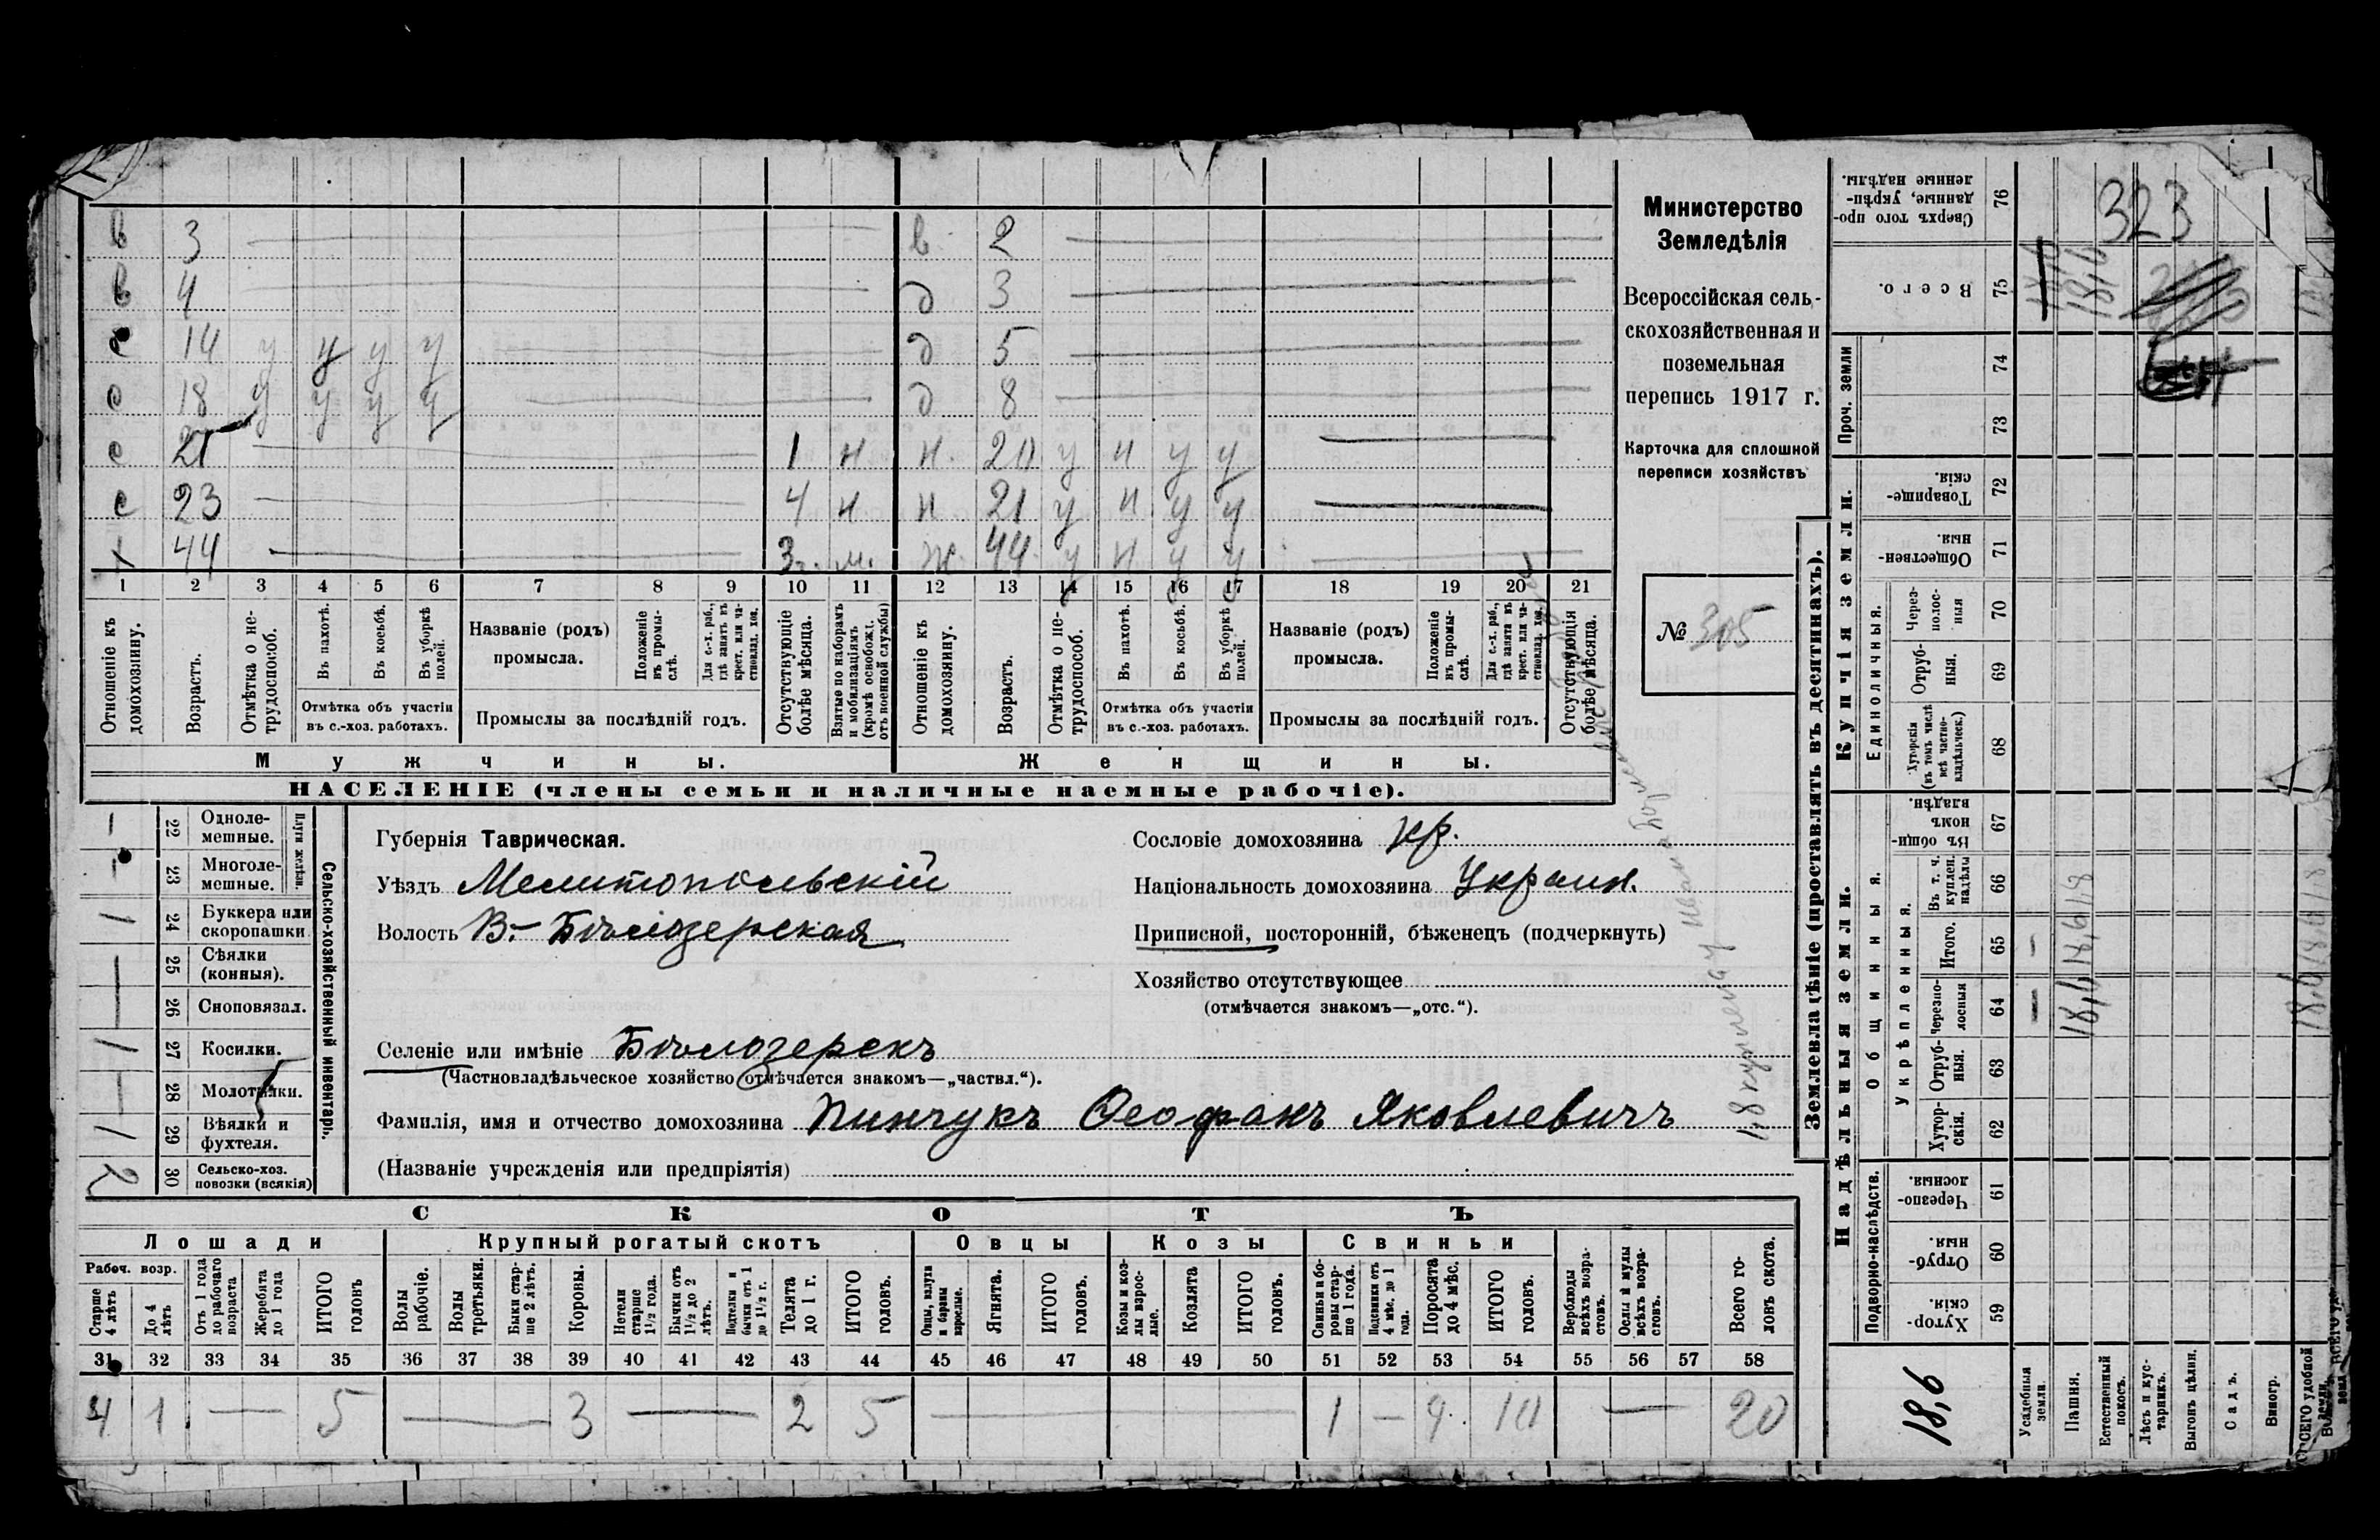 в 3 в 2
в 4 д 3
с 14 у у у у д 5
с 18 у у у у д 8
с 21 1 н н. 20 у н у у
с 23 4 н н 21 у н у у
х 44 3. м. ж. 44 у н у у
1 2 3 4 5 6 7 8 9 10 11 12 13 14 15 16 17 18 19 20 21
Отношеніе къ домохозяину.
Возрастъ.
Отмѣтка о нетрудоспособ.
Въ пахотѣ.
Въ косьбѣ.
Въ уборкѣ полей.
Отмѣтка объ участіи
въ с.-хоз. работахъ.
Названіе (родъ)
промысла.
Положеніе въ промыслѣ.
Для с.-х. раб., гдѣ занятъ въ крест. или частновлад. хоз.
Промыслы за послѣдній годъ.
Отсутствующіе болѣе мѣсяца.
Взятые по наборамъ и мобилизаціямъ (кромѣ освобожд. отъ военной службы)
Отношеніе къ домохозяину.
Возрастъ.
Отмѣтка о нетрудоспособ.
Въ пахотѣ.
Въ косьбѣ.
Въ уборкѣ полей.
Отмѣтка объ участіи
въ с.-хоз. работахъ.
Названіе (родъ)
промысла.
Положеніе въ промыслѣ.
Для с.-х. раб., гдѣ занята въ крест. или частновлад. хоз.
Промыслы за послѣдній годъ.
Отсутствующія болѣе мѣсяца.
Мужчины. Женщины.
НАСЕЛЕНІЕ (члены семьи и наличные наемные рабочіе).
Министерство
Земледѣлія
Всероссійская сель-
скохозяйственная и
поземельная
перепись 1917 г.
Карточка для сплошной
переписи хозяйствъ
№ 305
Сельско-хозяйственный инвентарь.
Плуги желѣзн.
— 22 Одноле-
мешные.
— 23 Многоле-
мешные.
1 24 Буккера или
скоропашки
— 25 Сѣялки
(конныя).
— 26 Сноповязал.
1 27 Косилки.
— 28 Молотилки.
1 29 Вѣялки и
фухтеля.
2 30 Сельско-хоз.
повозки (всякія)
Губернія Таврическая.
Уѣздъ Мелитопольскій
Волость В.- Бѣлозерская
Селеніе или имѣніе Бѣлозерскъ
(Частновладѣльческое хозяйство отмѣчается знакомъ—„частвл.“).
Фамилія, имя и отчество домохозяина Пинчукъ Ѳеофанъ Яковлевичъ
(Названіе учрежденія или предпріятія)
Сословіе домохозяина кр.
Національность домохозяина Украин.
Приписной, посторонній, бѣженецъ (подчеркнуть)
Хозяйство отсутствующее
(отмѣчается знакомъ—„отс.“).
СКОТЪ
Лошади Крупный рогатый скотъ Овцы Козы Свиньи
Рабоч. возр.
Старше 4 лѣтъ
До 4 лѣтъ
Отъ 1 года до рабочаго возраста
Жеребята до 1 года
ИТОГО головъ
Волы рабочіе.
Волы третьяки.
Быки старше 2 лѣтъ.
Коровы.
Нетели старше 1½ года.
Бычки отъ 1½ до 2 лѣтъ.
Подтелки и бычки отъ 1 до 1½ г.
Телята до 1 г.
ИТОГО головъ.
Овцы, валухи и бараны взрослые.
Ягнята.
ИТОГО головъ.
Козы и козлы взрослые.
Козлята
ИТОГО головъ.
Свиньи и боровы старше 1 года.
Подсвинки отъ 4 мѣс. до 1 года.
Поросята до 4 мѣс.
ИТОГО головъ.
Верблюды всѣхъ возрастовъ.
Ослы и мулы всѣхъ возрастовъ.
Всего головъ скота.
31 32 33 34 35 36 37 38 39 40 41 42 43 44 45 46 47 48 49 50 51 52 53 54 55 56 57 58
4 1 — 5 — 3 — 2 5 — 1 — 9 10 — 20
Землевладѣніе (проставлять въ десятинахъ).
Надѣльныя земли. Купчія земли. Проч. земли
Подворно-наслѣдств.
Общинныя.
Укрѣпленныя.
Единоличныя.
59 Хутор-
скія.
60 Отруб-
ныя.
61 Черезпо-
лосныя.
62 Хутор-
скія.
63 Отруб-
ныя.
64 Черезпо-
лосныя
65 Итого.
66 Въ т. ч. куплен. надѣлы
67 Въ общин-
номъ
владѣн.
68 Хуторскія (въ томъ числѣ всѣ частно-владѣльческ.)
69 Отруб-
ныя.
70 Через-
полос-
ныя
71 Обществен-
ныя.
72 Товарище-
скія.
73
74
75 Всего.
76 Сверхъ того про-
данные, укрѣп-
ленные надѣлы.
323
18,6
Усадебныя земли.
Пашня.
Естественный покосъ.
Лѣсъ и кустарникъ.
Выгонъ цѣлин.
Садъ.
Виногр.
ВСЕГО удобной земли.